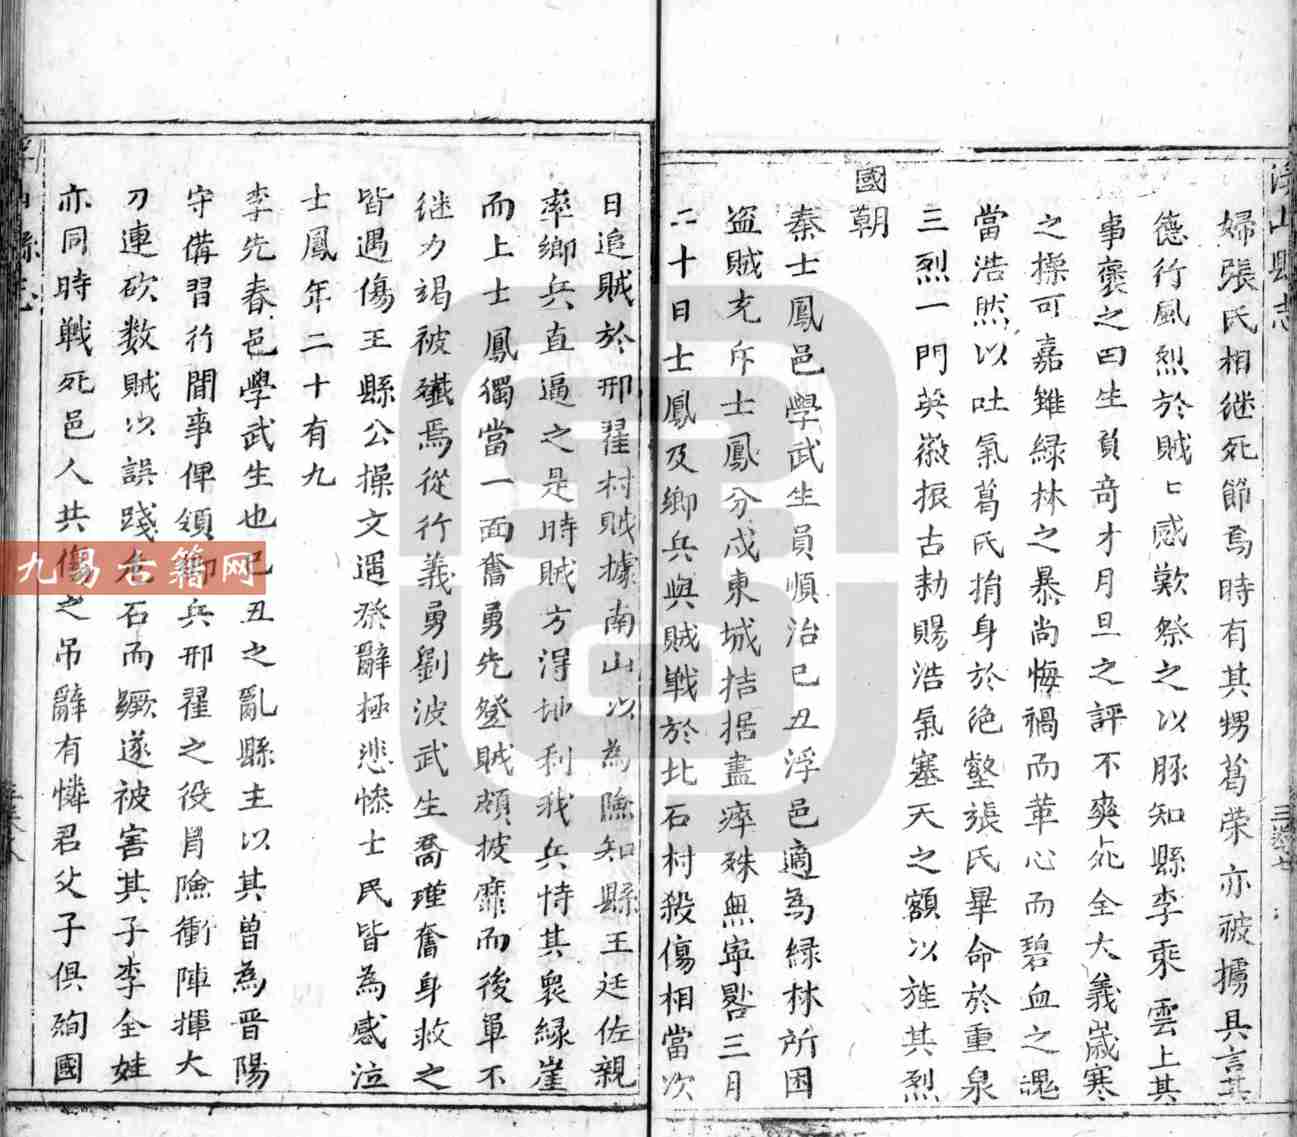 浮山縣志
婦張氏相继死節焉時有其甥葛荣亦被擄具言其
德行風烈於賊〻感歎祭之以豚知縣李乘雲上其
事褒之曰生負奇才月旦之評不爽死全大義歲寒
之操可嘉雖綠林之暴尚悔禍而革心而碧血之魂
當浩然以吐氣葛氏捐身於絶壑張氏畢命於重泉
三烈一門英徽振古勅賜浩氣塞天之額以旌其烈
國朝
秦士鳳邑學武生員順治己丑浮邑適為緑林所困
盗賊充斥士鳳分戍東城拮据盡瘁殊無寜晷三月
二十日士鳳及鄉兵與賊戰於北石村殺傷相當次
日追賊於邢翟村賊據南山以為險知縣王廷佐親
率鄉兵直逼之是時賊方得地利我兵恃其衆緑崖
而上士鳳獨當一面奮勇先登賊頗披靡而後軍不
继力竭被殲焉從行義勇劉波武生喬瑾奮身救之
皆遇傷王縣公操文遥祭辭極悲惨士民皆為感泣
士鳳年二十有九
李先春邑學武生也己丑之亂縣主以其曾為晋陽
守備習行間事俾領鄉兵邢翟之役冐險衝陣揮大
刀連砍数賊以誤踐危石而蹶遂被害其子李全姓
亦同時戦死邑人共傷之吊辭有憐君父子俱殉國
九易古籍网